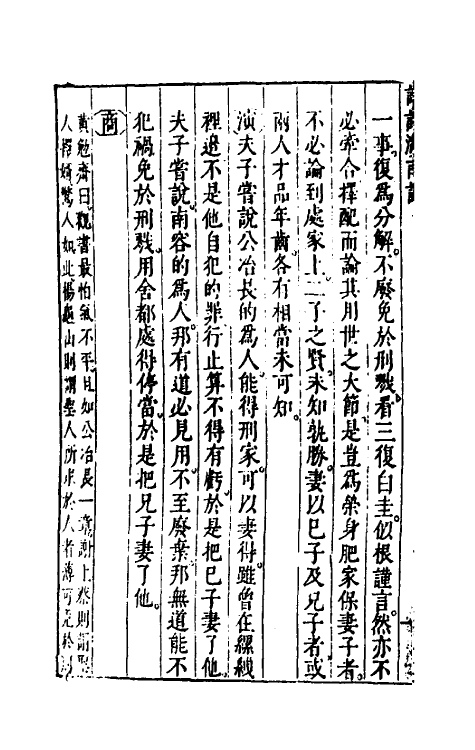 一事復爲分解不廢免於刑戮看三復白圭似根謹言然亦不
必牽合擇配而論其用世之大節是豈爲榮身肥家保妻子者
不必論到處家上二子之賢未知孰勝妻以巳子及兄子者或
兩人才品年齒各有相當未可知
演夫子嘗說公冶長的爲人能得刑家可以妻得雖曾在縲絏
裡邊不是他自犯的罪行止算不得有虧於是把巳子妻了他
夫子嘗說南容的爲人邦有道必見用不至廢棄邦無道能不
犯禍免於刑戮用舍都處得停當於是把兄子妻了他
商
黃勉齋曰觀書最怕氣不平且如公冶長一章謝上蔡則謂聖
人擇婿驚人如此楊龜山則謂聖人所求於人者薄可免於刑